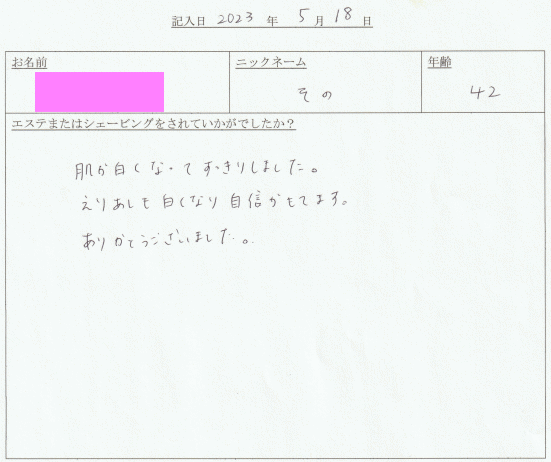 記入日 2023 年 5 月 18 日
お名前 ニックネーム 年齢
その 42
エステまたはシェービングをされていかがでしたか?
肌が白くなってすっきりしました。
えりあしも白くなり自信がもてます。
ありがとうございました。